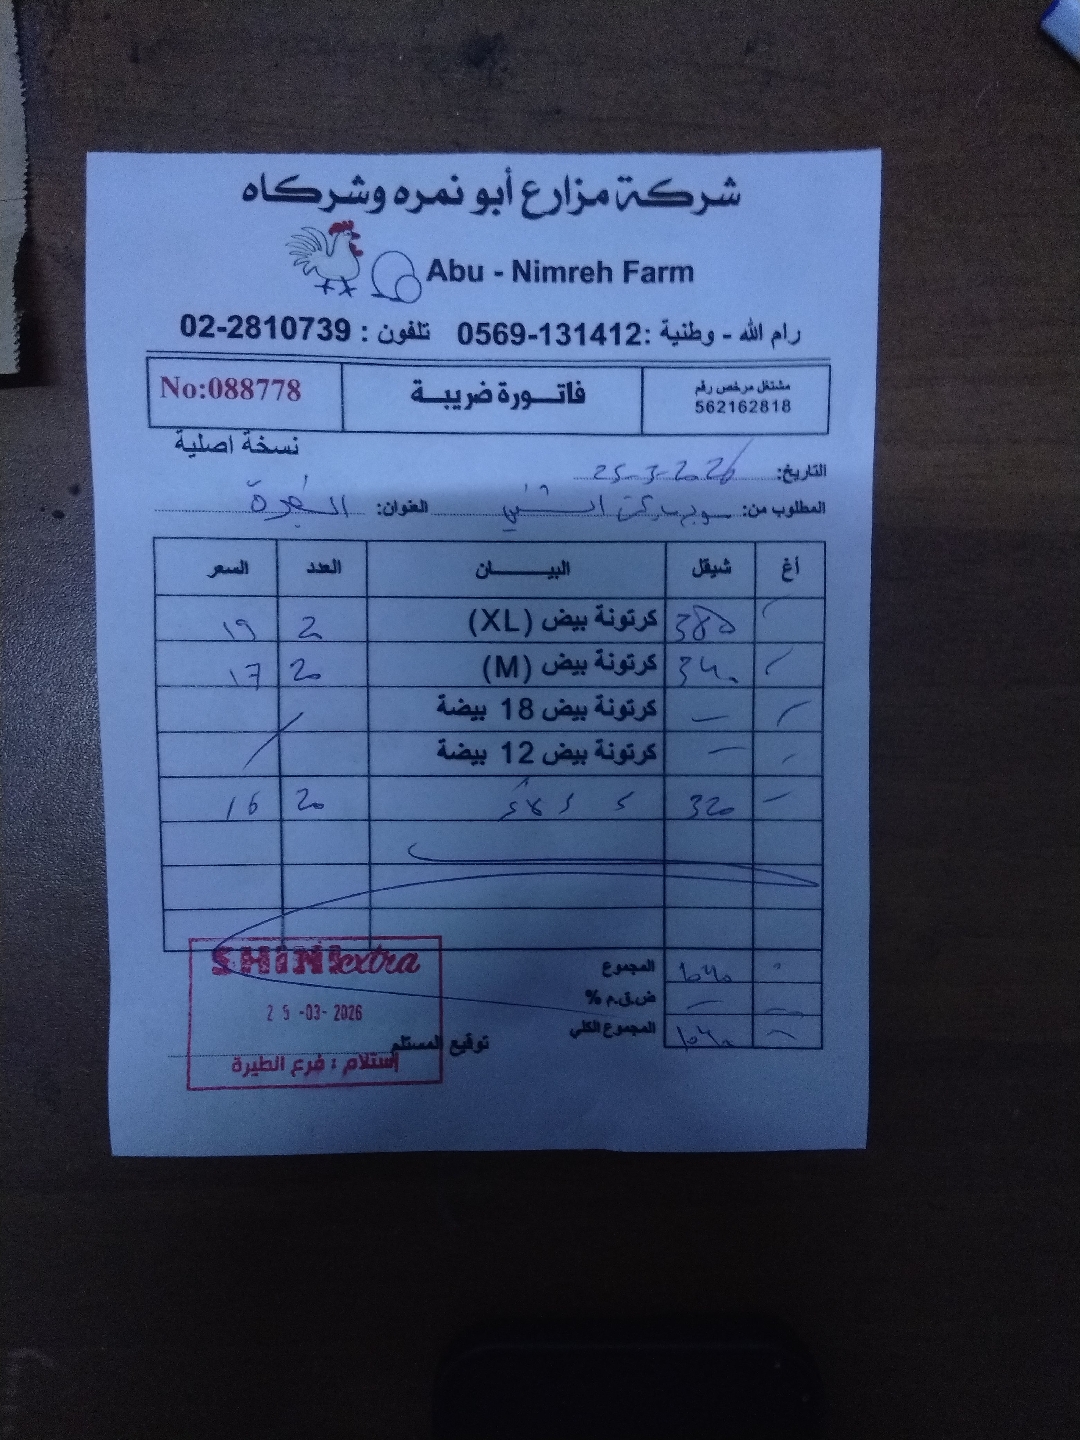 شركة مزارع أبو نمره وشركاه
Abu - Nimreh Farm
رام الله - وطنية :0569-131412 تلفون : 02-2810739
مشتغل مرخص رقم 562162818
فاتورة ضريبة
No:088778
نسخة اصلية
التاريخ: 25-3-2026
المطلوب من: سوبرماركت الشني العنوان:
أغ شيقل البيان العدد السعر
380 كرتونة بيض (XL) 2 19
340 كرتونة بيض (M) 20 17
كرتونة بيض 18 بيضة
كرتونة بيض 12 بيضة
320 20 16
المجموع 1040
ض.ق.م %
المجموع الكلي 1040
توقيع المستلم
SHINI extra
25-03-2026
إستلام : فرع الطيرة